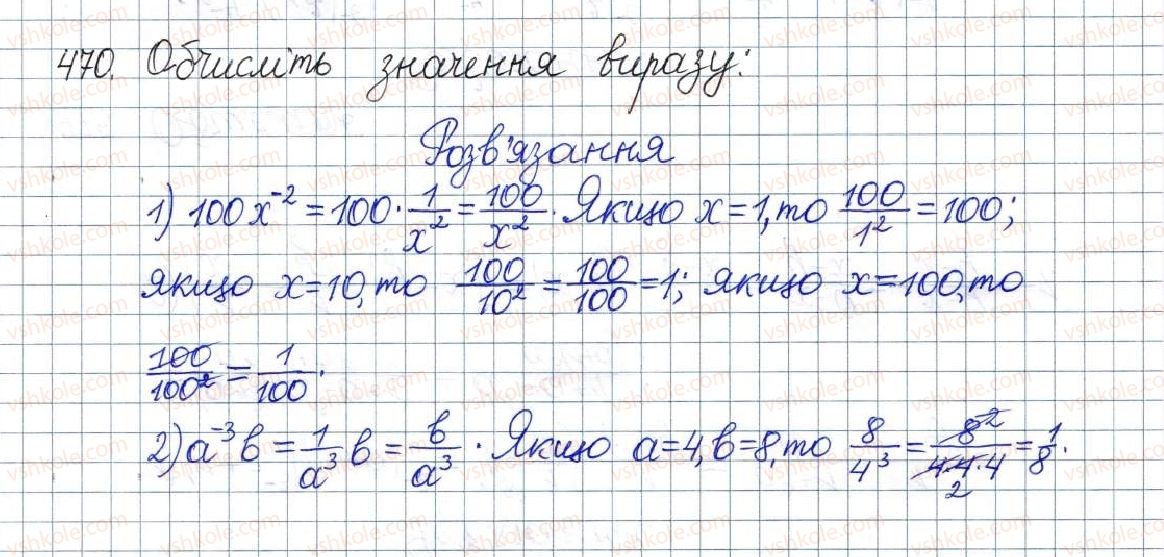 470. Обчисліть значення виразу:
Розв'язання
1) 100x⁻² = 100 · 1/x² = 100/x². Якщо x = 1, то 100/1² = 100;
якщо x = 10, то 100/10² = 100/100 = 1; якщо x = 100, то
100/100² = 1/100.
2) a⁻³b = 1/a³ b = b/a³. Якщо a = 4, b = 8, то 8/4³ = 8²/4·4·4 = 1/8.
2